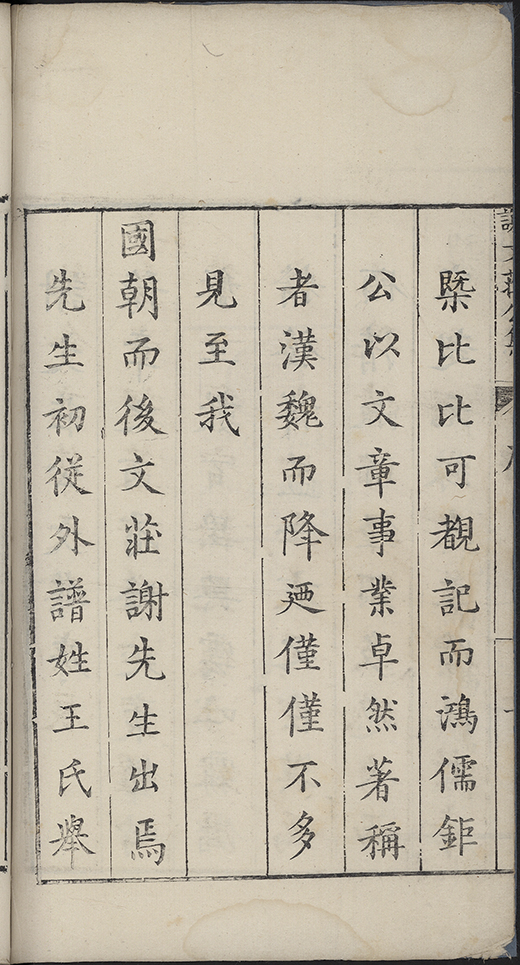 槩比比可覩記而鴻儒鉅
公以文章事業卓然著稱
者漢魏而降迺僅僅不多
見至我
國朝而後文莊謝先生出焉
先生初從外譜姓王氏舉